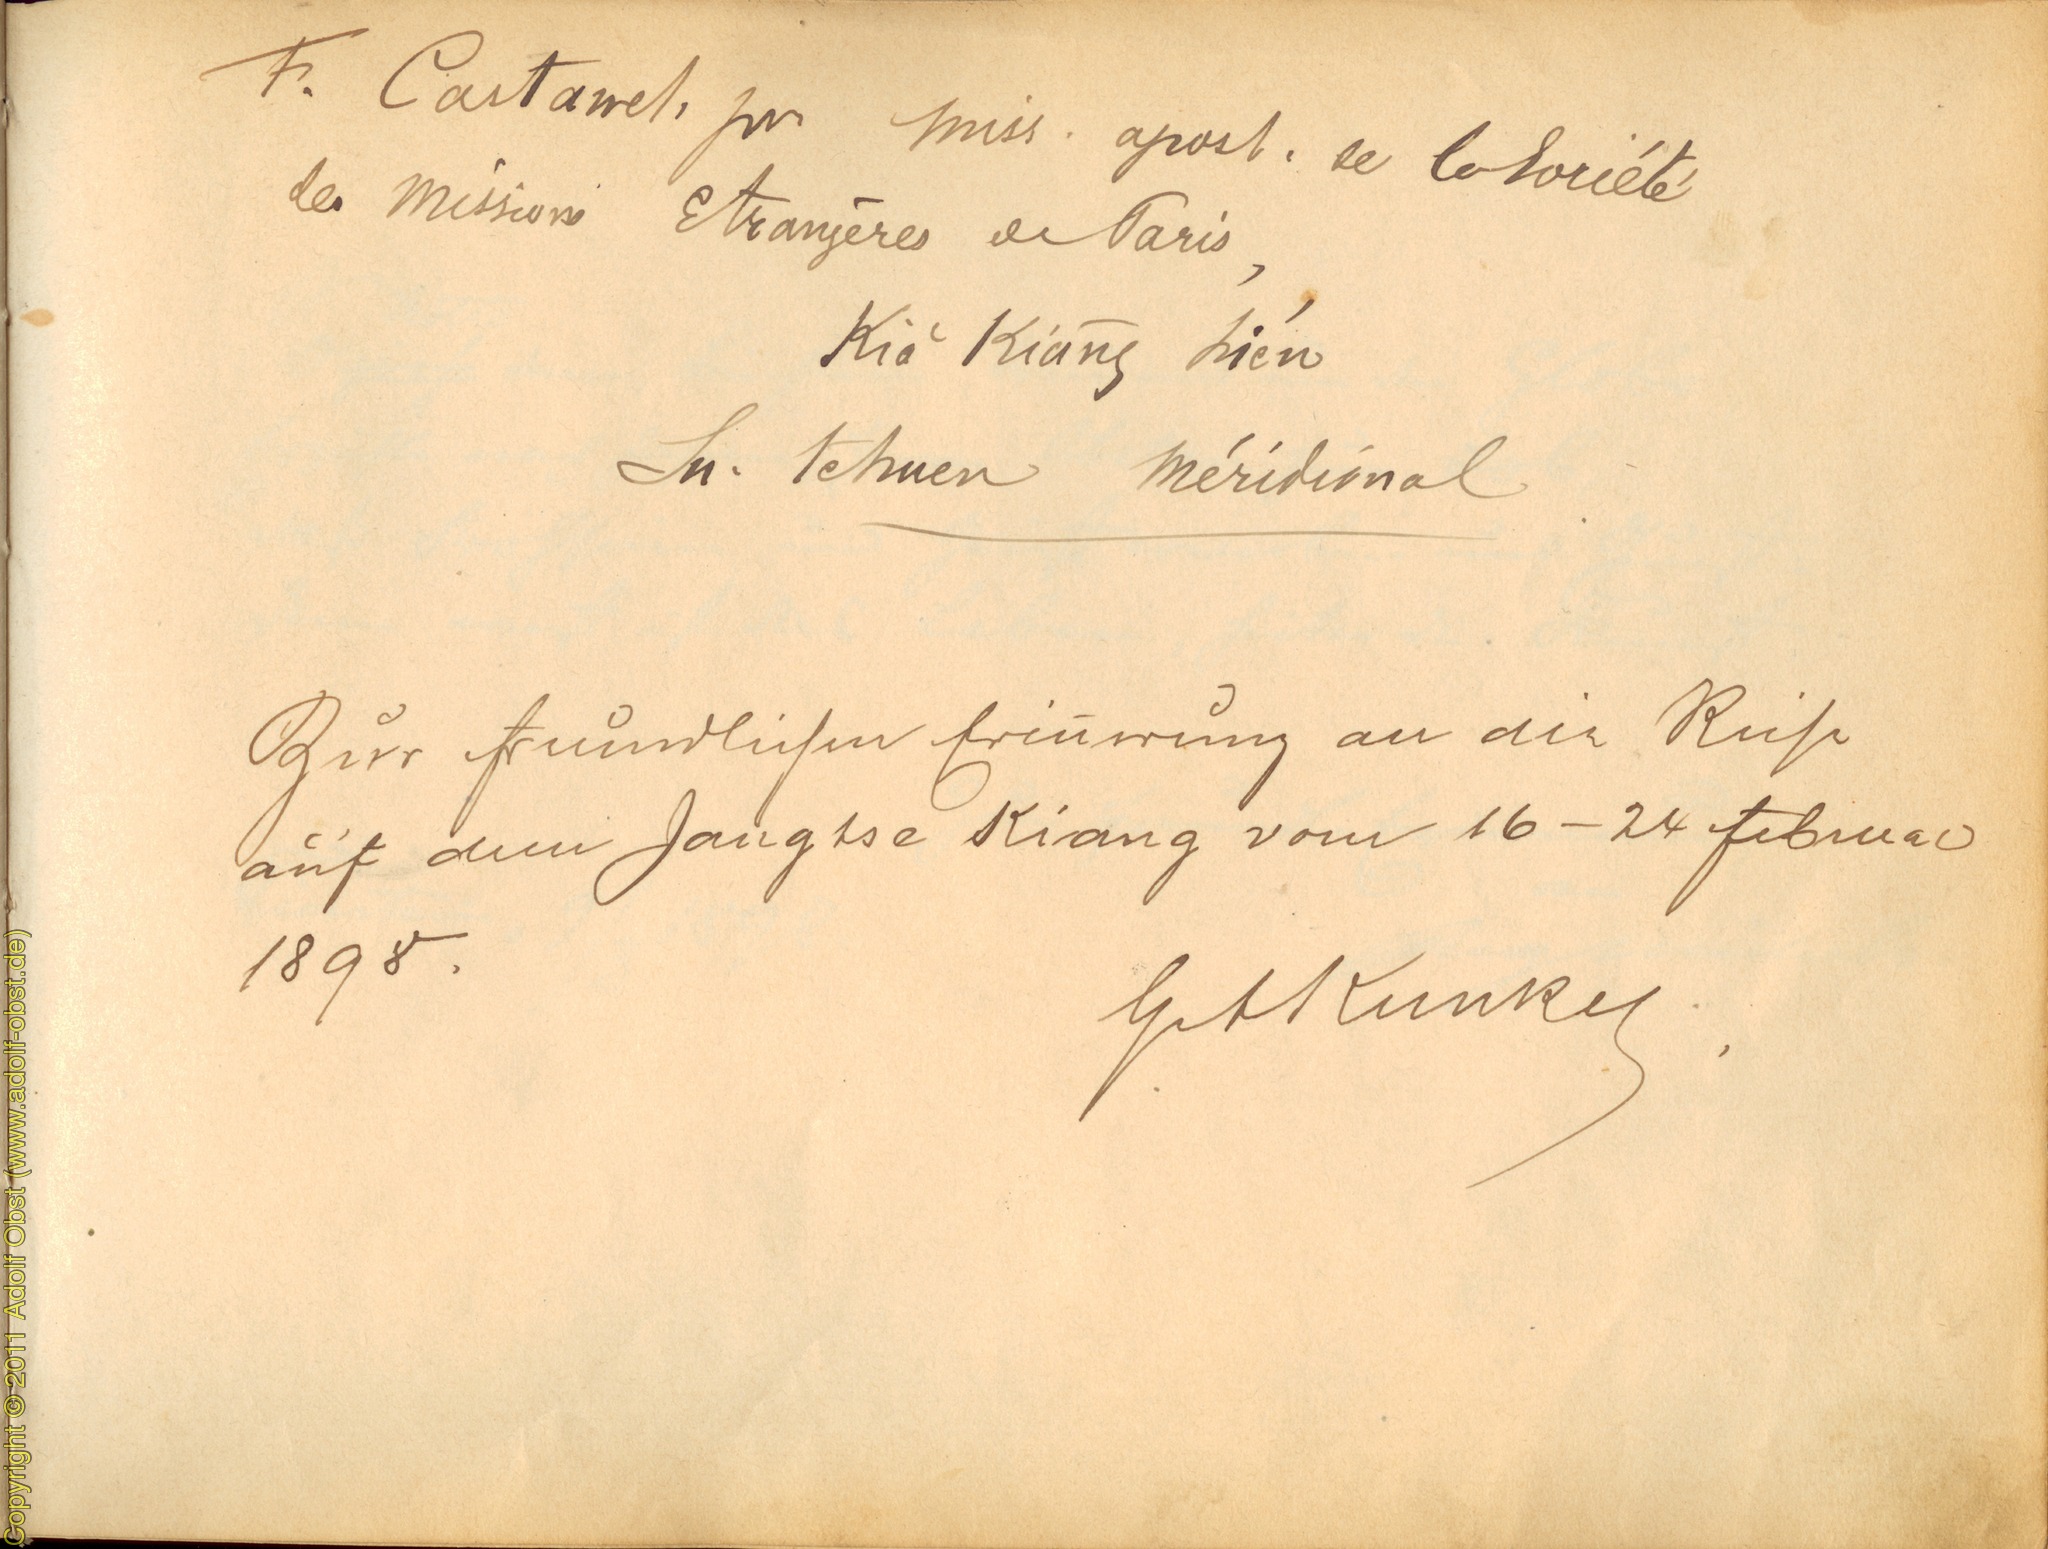 F. Castanet, pr. miss. apost. de la Société
des Missions Etrangères de Paris,
Kiă Kiāng hién
Su-tchuen méridional
Zur freundlichen Erinnerung an die Reise
auf dem Jangtse Kiang vom 16-24 Februar
1898.
Kunkel
Copyright © 2011 Adolf Obst (www.adolf-obst.de)